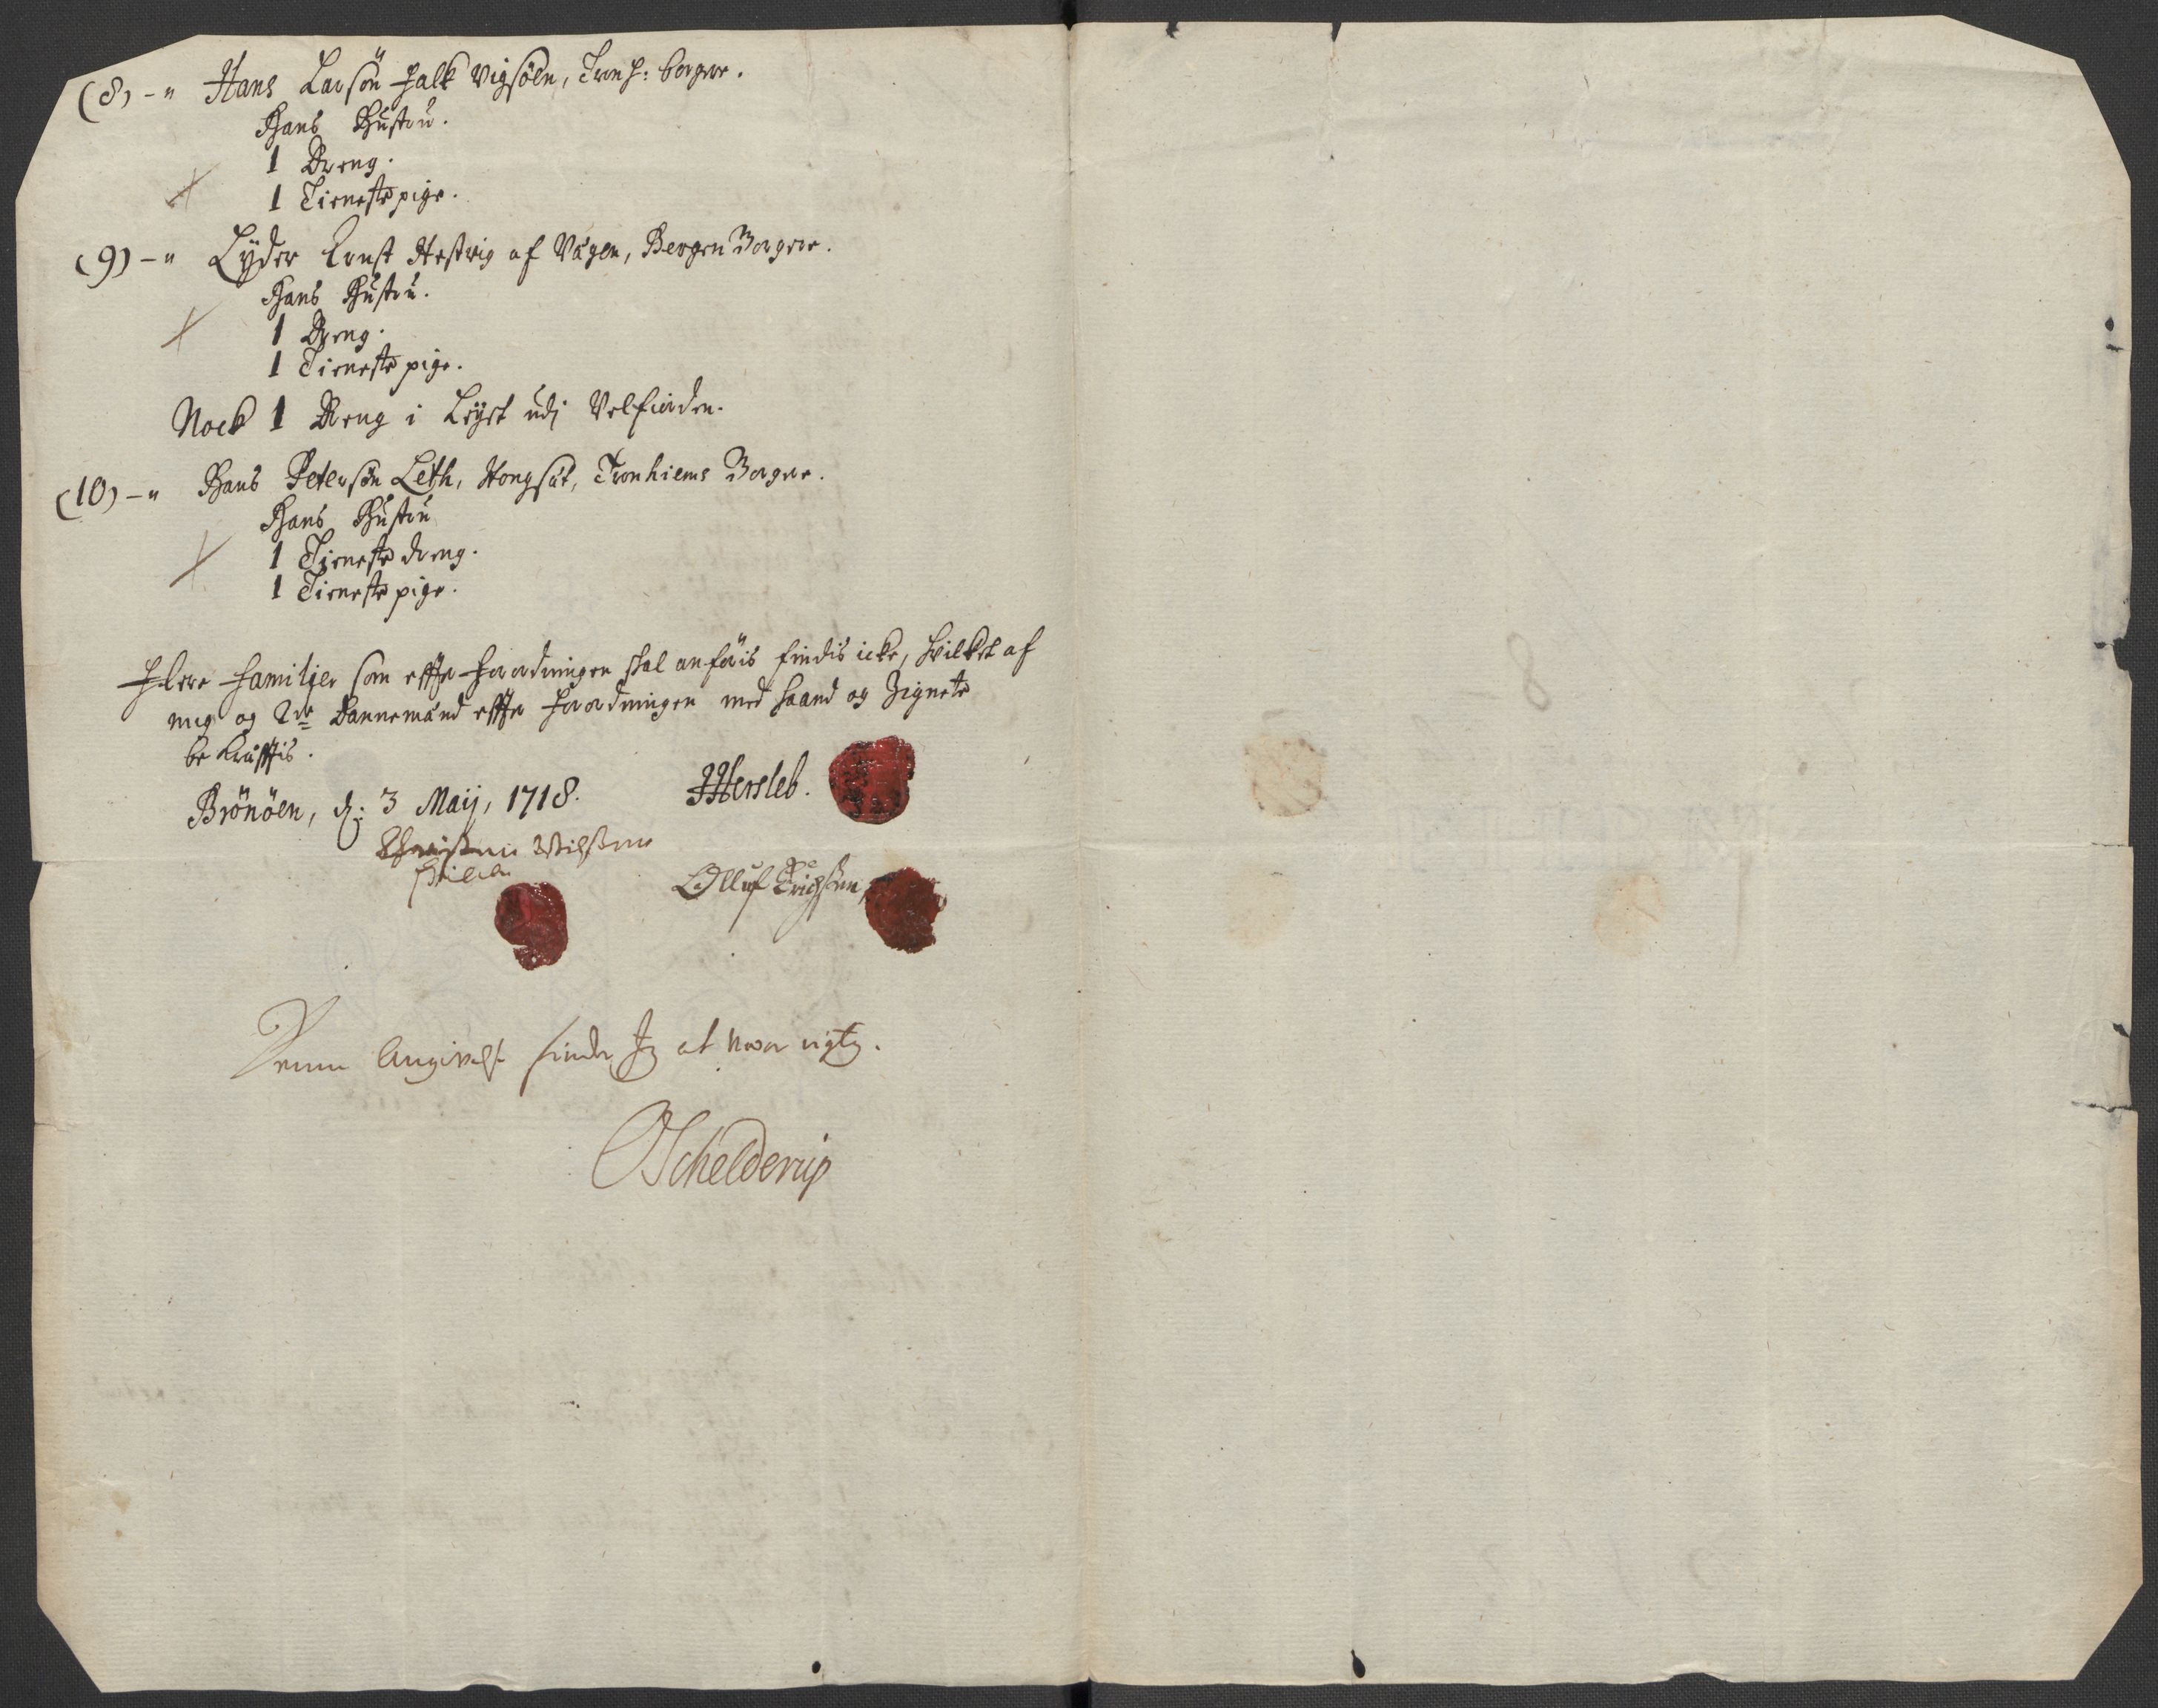 (8) - " Hans Larsön Falk Vigsöen, Tronh: borgere.
Hans Hustru.
1 Dreng.
1 Tienestepige.
(9) - " Lÿder Ernst Hestvig af Vägen, Bergen Borgere.
Hans Hustru.
1 Dreng.
1 Tienestepige.
Nock 1 Dreng i Leÿet udj Velfiorden.
(10) - " Hans Petersön Leth, Hongsät, Tronhiems Borgere.
Hans Hustru
1 Tienestedreng.
1 Tienestepige.
Flere familjer som effter forordningen skal anföris findis icke, hvilket af
mig og 2de Dannemænd effter forordningen med haand og Zignete
bekräfftis.
Brönöen, d: 3 Maij, 1718. Hersleb.
Olluf Erichsön
Denne Angivelse finder Jeg at were rigtig.
Schelderup